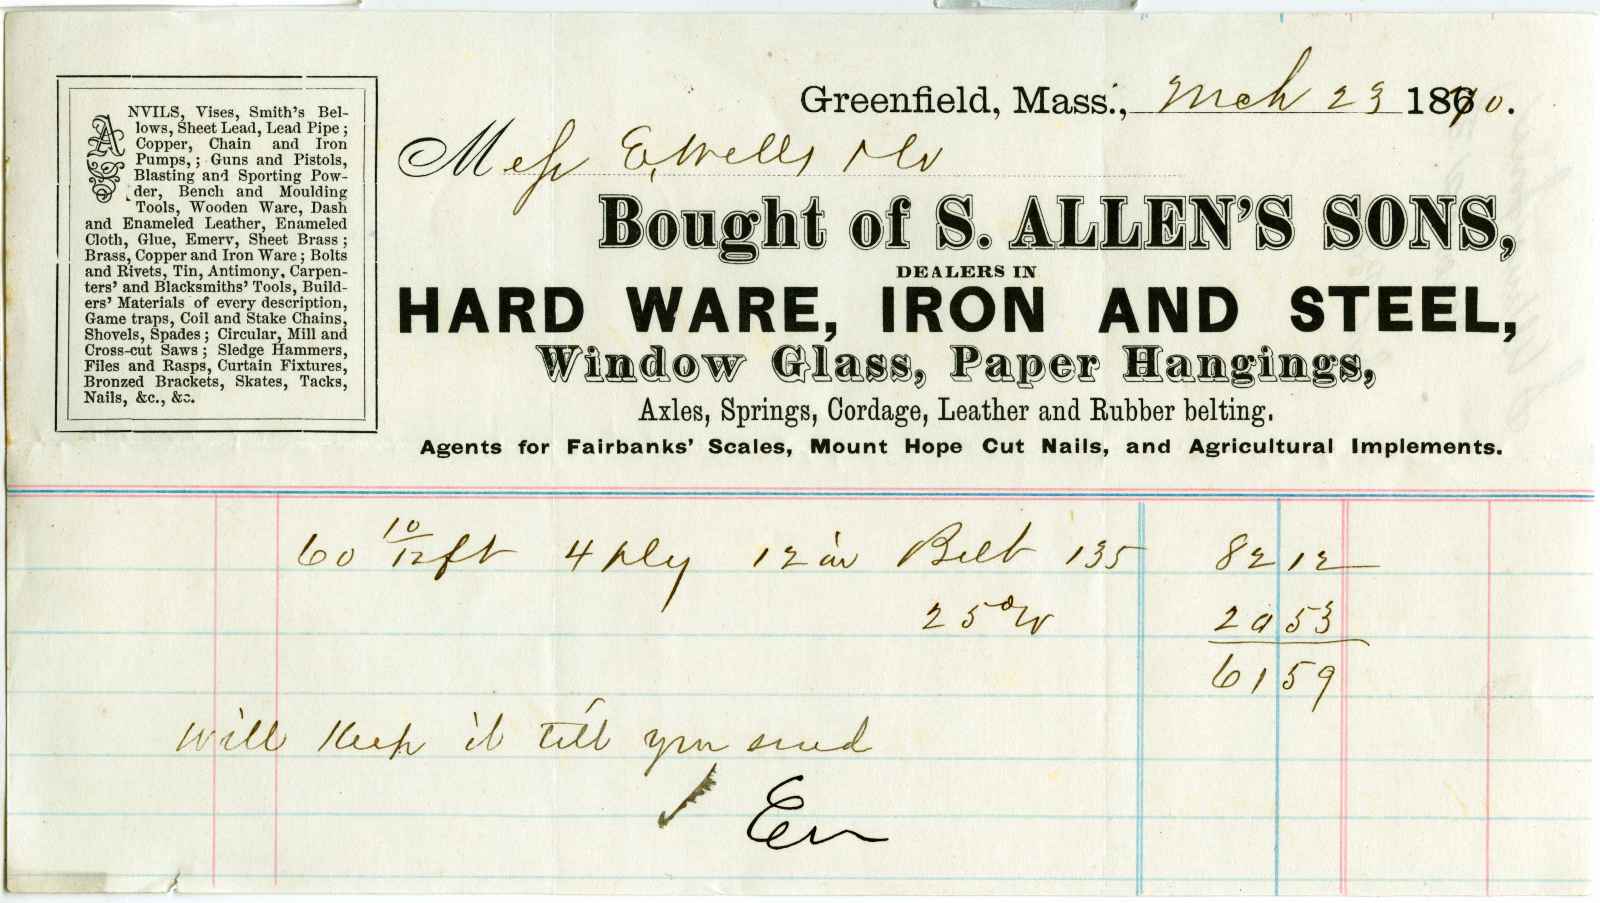 ANVILS, Vises, Smith's Bel-
lows, Sheet Lead, Lead Pipe;
Copper, Chain and Iron
Pumps,; Guns and Pistols,
Blasting and Sporting Pow-
der, Bench and Moulding
Tools, Wooden Ware, Dash
and Enameled Leather, Enameled
Cloth, Glue, Emery, Sheet Brass;
Brass, Copper and Iron Ware; Bolts
and Rivets, Tin, Antimony, Carpen-
ters' and Blacksmiths' Tools, Build-
ers' Materials of every description,
Game traps, Coil and Stake Chains,
Shovels, Spades; Circular, Mill and
Cross-cut Saws; Sledge Hammers,
Files and Rasps, Curtain Fixtures,
Bronzed Brackets, Skates, Tacks,
Nails, &c., &c.
Greenfield, Mass., Mch 23 1870.
Mess E. Wells
Bought of S. ALLEN'S SONS,
DEALERS IN
HARD WARE, IRON AND STEEL,
Window Glass, Paper Hangings,
Axles, Springs, Cordage, Leather and Rubber belting.
Agents for Fairbanks' Scales, Mount Hope Cut Nails, and Agricultural Implements.
60 10/12 ft 4 ply 12 in Belt 135 82 12
25 20 53
61 59
Will Keep it till you send